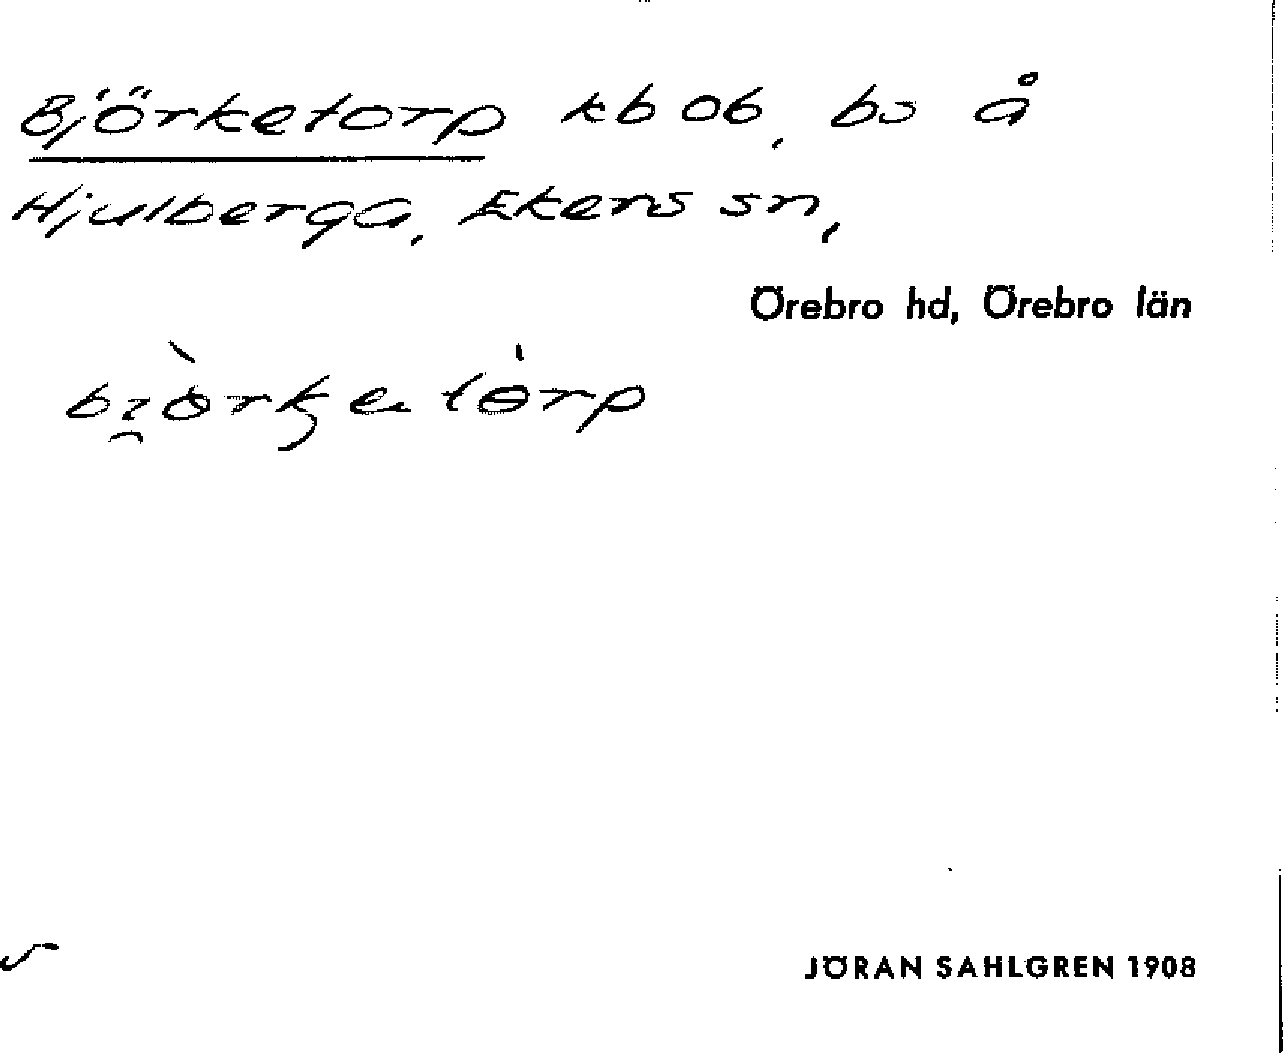 Björketorp kb ob, bs å
Hjulberga, Ekers sn,
Örebro hd, Örebro län
JÖRAN SAHLGREN 1908